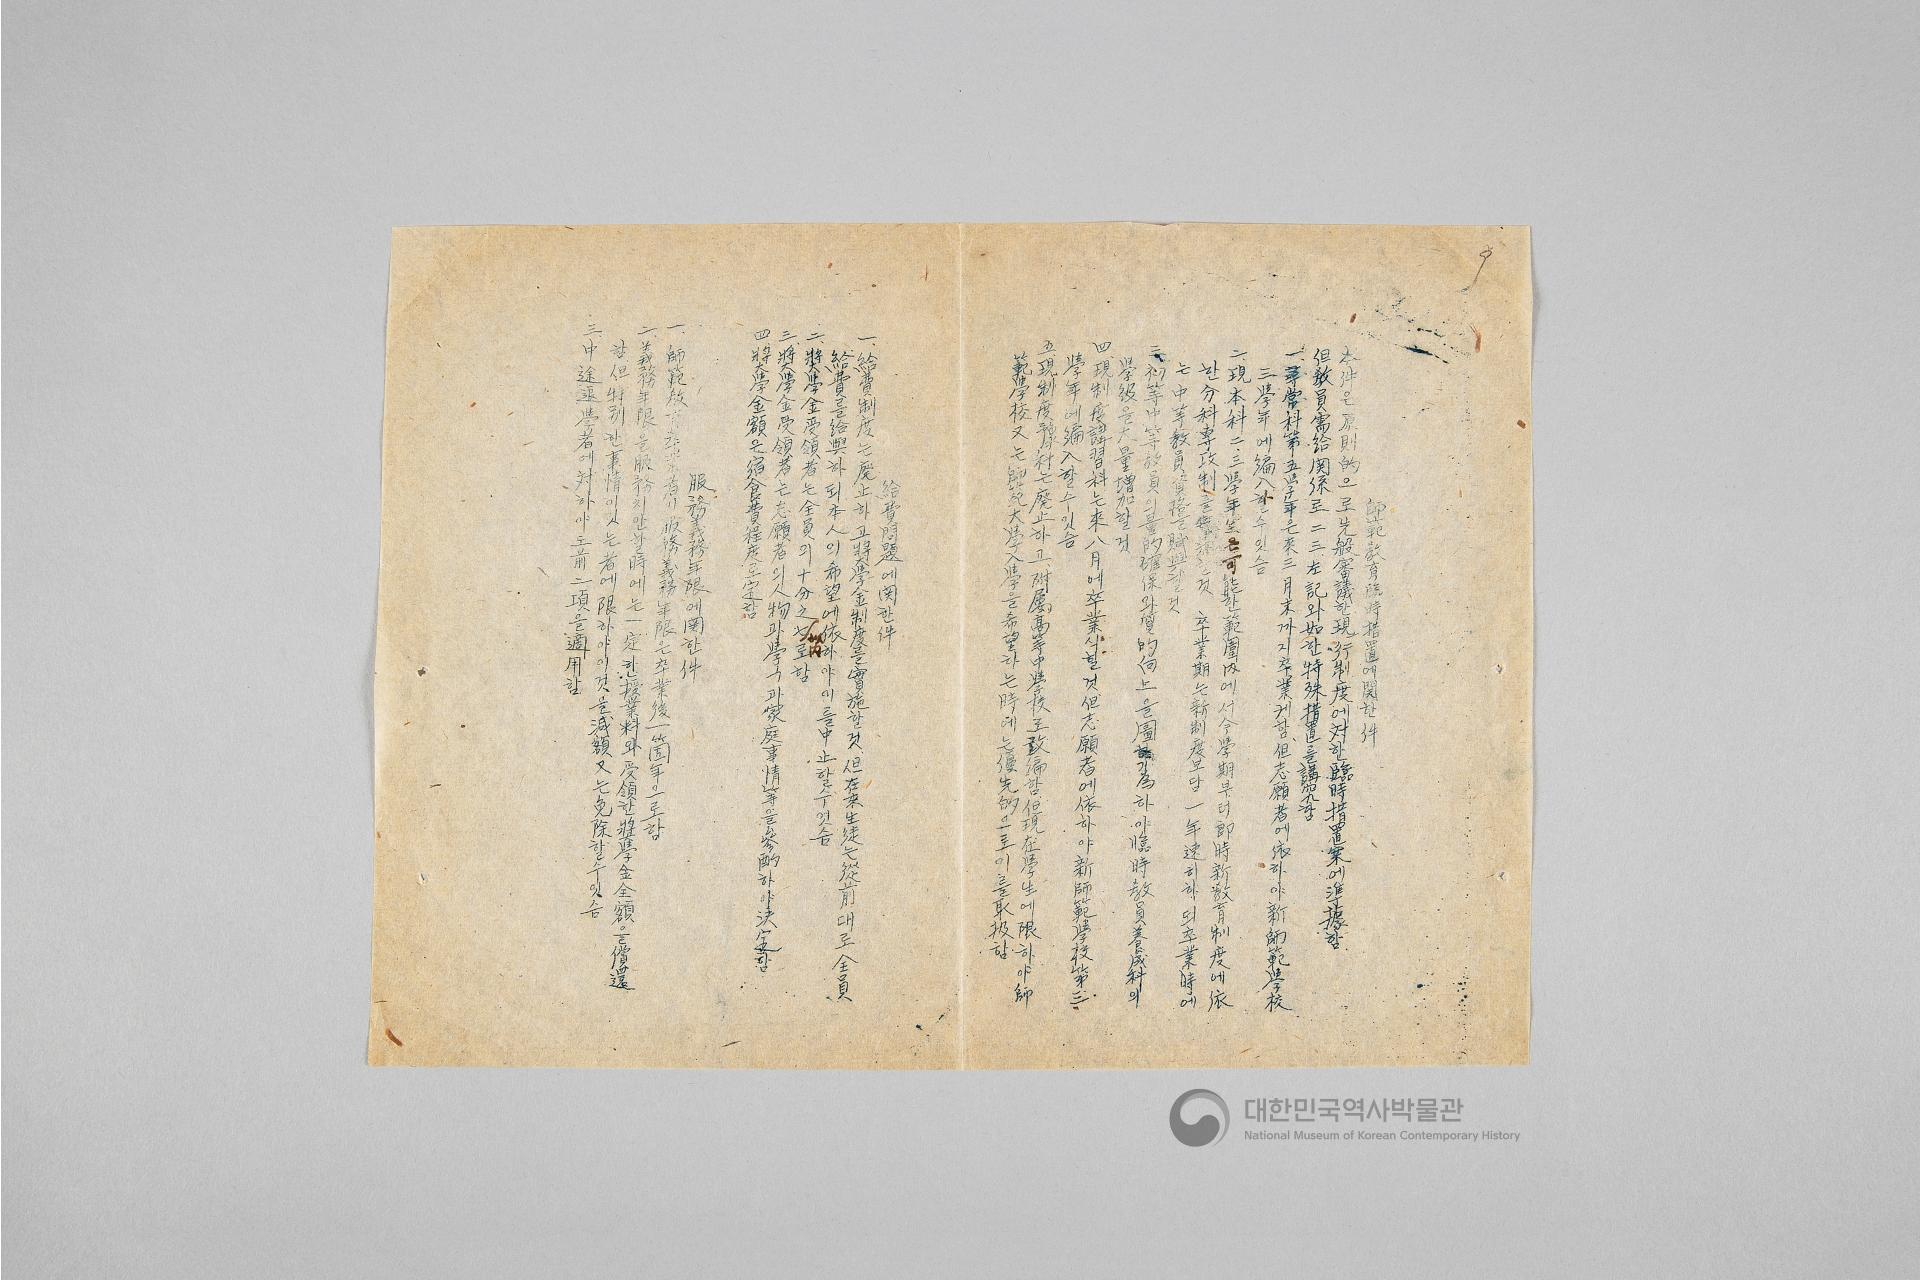 師範敎育臨時措置에関한件
本件은原則的으로先般審議한現行制度에対한臨時措置案에準據함
但敎員需給関係로二三左記와如한特殊措置를講究함
一、尋常科第五學年은來三月末까지卒業케함、但志願者에依하야新師範學校
三學年에編入할수잇슴
二、現本科二、三學年生은可能한範圍內에서今學期부터卽時新敎育制度에依
한分科専攻制를 것 卒業期는新制度보담一年速히하되卒業時에
는中等敎員資格을賦與할것
三、初等中等敎員의量的確保와質的向上을圖 하야臨時敎員養成科의
學級을大量增加할것
四、現制度講習科는來八月에卒業식힐것但志願者에依하야新師範學校第三
學年에編入할수잇슴
五、現制度尋常科는廃止하고、附属高等中學校로改編함、但現在學生에限하야師
範學校又는師範大學入學을希望하는時에는優先的으로이를取扱함
給費問題에関한件
一、給費制度는廃止하고奬學金制度를實施할것、但在來生徒는從前대로全員
給費를給與하되本人의希望에依하야이를中止할수잇슴
二、奬學金受領者는全員의十分之 로함
三、奬學金受領者는志願者의人物과學力과家庭事情等을參酌하야決定함
四、奬學金額은宿食費程度로定함
服務義務年限에関한件
一、師範 卒業者의服務義務年限은卒業後一箇年으로함
二、義務年限을服務치안할時에는一定한授業料와受領한奬學金全額을償還
함、但特別한事情이잇는者에限하야이것을減額又는免除할수잇슴
三、中途退學者에対하야도前二項을適用함
대한민국역사박물관
National Museum of Korean Contemporary History